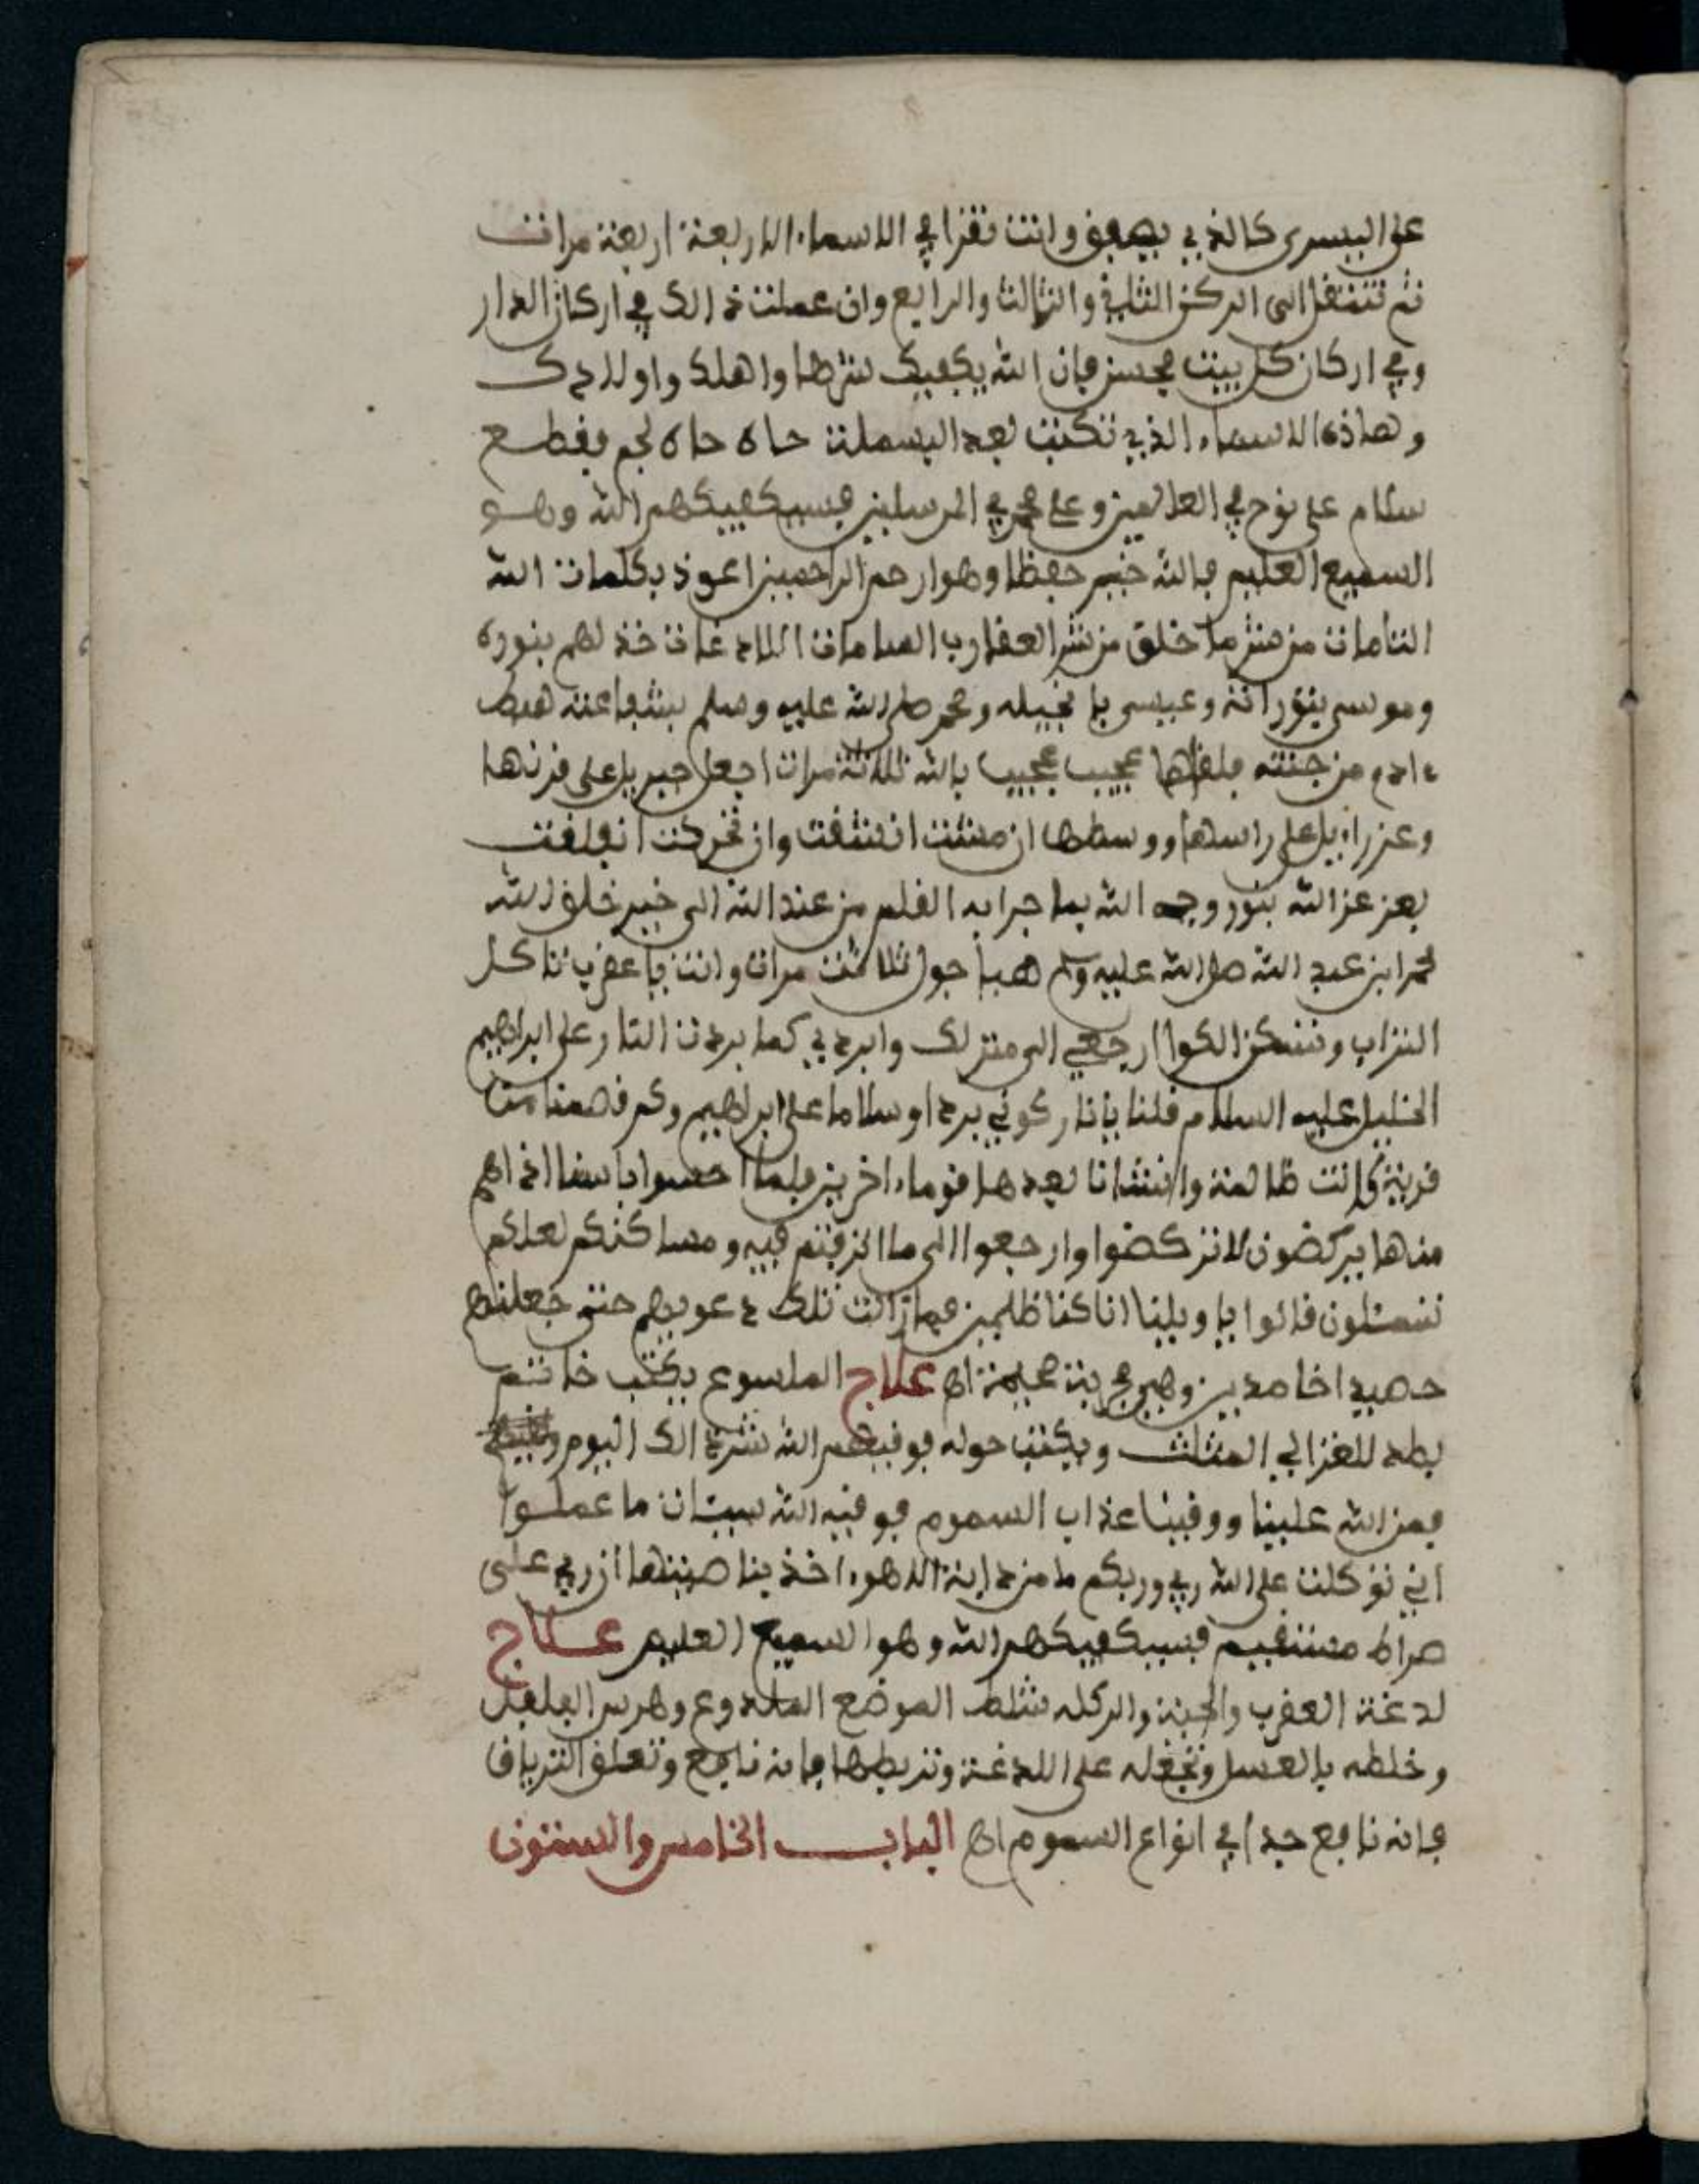 على اليسرى كالذي يصفق وانت تقرا في الاسماء الاربعة اربعة مرات
ثم تنتقل الى الركن الثاني والثالث والرابع وان عملت ذالك في اركان الدار
وفي اركان كل بيت فحسن فان الله يكفيك شرها واهلك واولادك
وهاذه الاسماء الذي تكتب بعد البسملة حاه حاه لجم
سلام على نوح في العالمين وعلى محمد في المرسلين فسيكفيكهم الله وهو
السميع العليم فالله خير حفظا وهو ارحم الراحمين اعوذ بكلمات الله
التامات من شر ما خلق من شر العقارب السامات اللادغات خذ لهم بنوره
وموسى بتوراته وعيسى بانجيله ومحمد صلى الله عليه وسلم بشفاعته هبط
ءادم من جنته فلقاها عجيب عجيب بالله ثلاثة مرات اجعل جبريل على قرنها
وعزراءيل على راسها ووسطها ان مشت انشقت وان تحركت انفلقت
بعز عز الله بنور وجه الله بما جرا به القلم من عند الله الى خير خلق الله
محمد ابن عبد الله صلى الله عليه وسلم هيا حول ثلاثت مرات وانت يا عقرب تاكل
التراب وتسكن الكوا ارجعي الى منزلك وابردي كما بردت النار على ابراهيم
الخليل عليه السلام قلنا يانار كوني بردا وسلاما على ابراهيم وكم قصمنا من
قرية كانت ظالمة وانشانا بعدها قوما ءاخرين فلما احسوا باسنا اذا هم
منها يركضون لا تركضوا وارجعوا الى ما اترفتم فيه ومساكنكم لعلكم
تسئلون قالوا يا ويلنا انا كنا ظلمين فما زالت تلك دعويهم حتى جعلناهم
حصيدا خامدين وهي مجربة صحيحة اه علاج الملسوع يكتب خاتم
بطد للغزالي المثلث ويكتب حوله فوقيهم الله شر ذالك اليوم
فمن الله علينا ووقينا عذاب السموم فوقيه الله سيئات ما عملوا
اني توكلت على الله ربي وربكم ما من دابة الا هو ءاخذ بناصيتها ان ربي على
صراط مستقيم فسيكفيكهم الله وهو السميع العليم علاج
لدغة العقرب والحية والركله تشلط الموضع الملدوغ وهرس الفلفل
وخلطه بالعسل وتجعله على اللدغة وتربطها فانه نافع وتعلق الترياق
فانه نافع جدا في انواع السموم اه الباب الخامس والستون